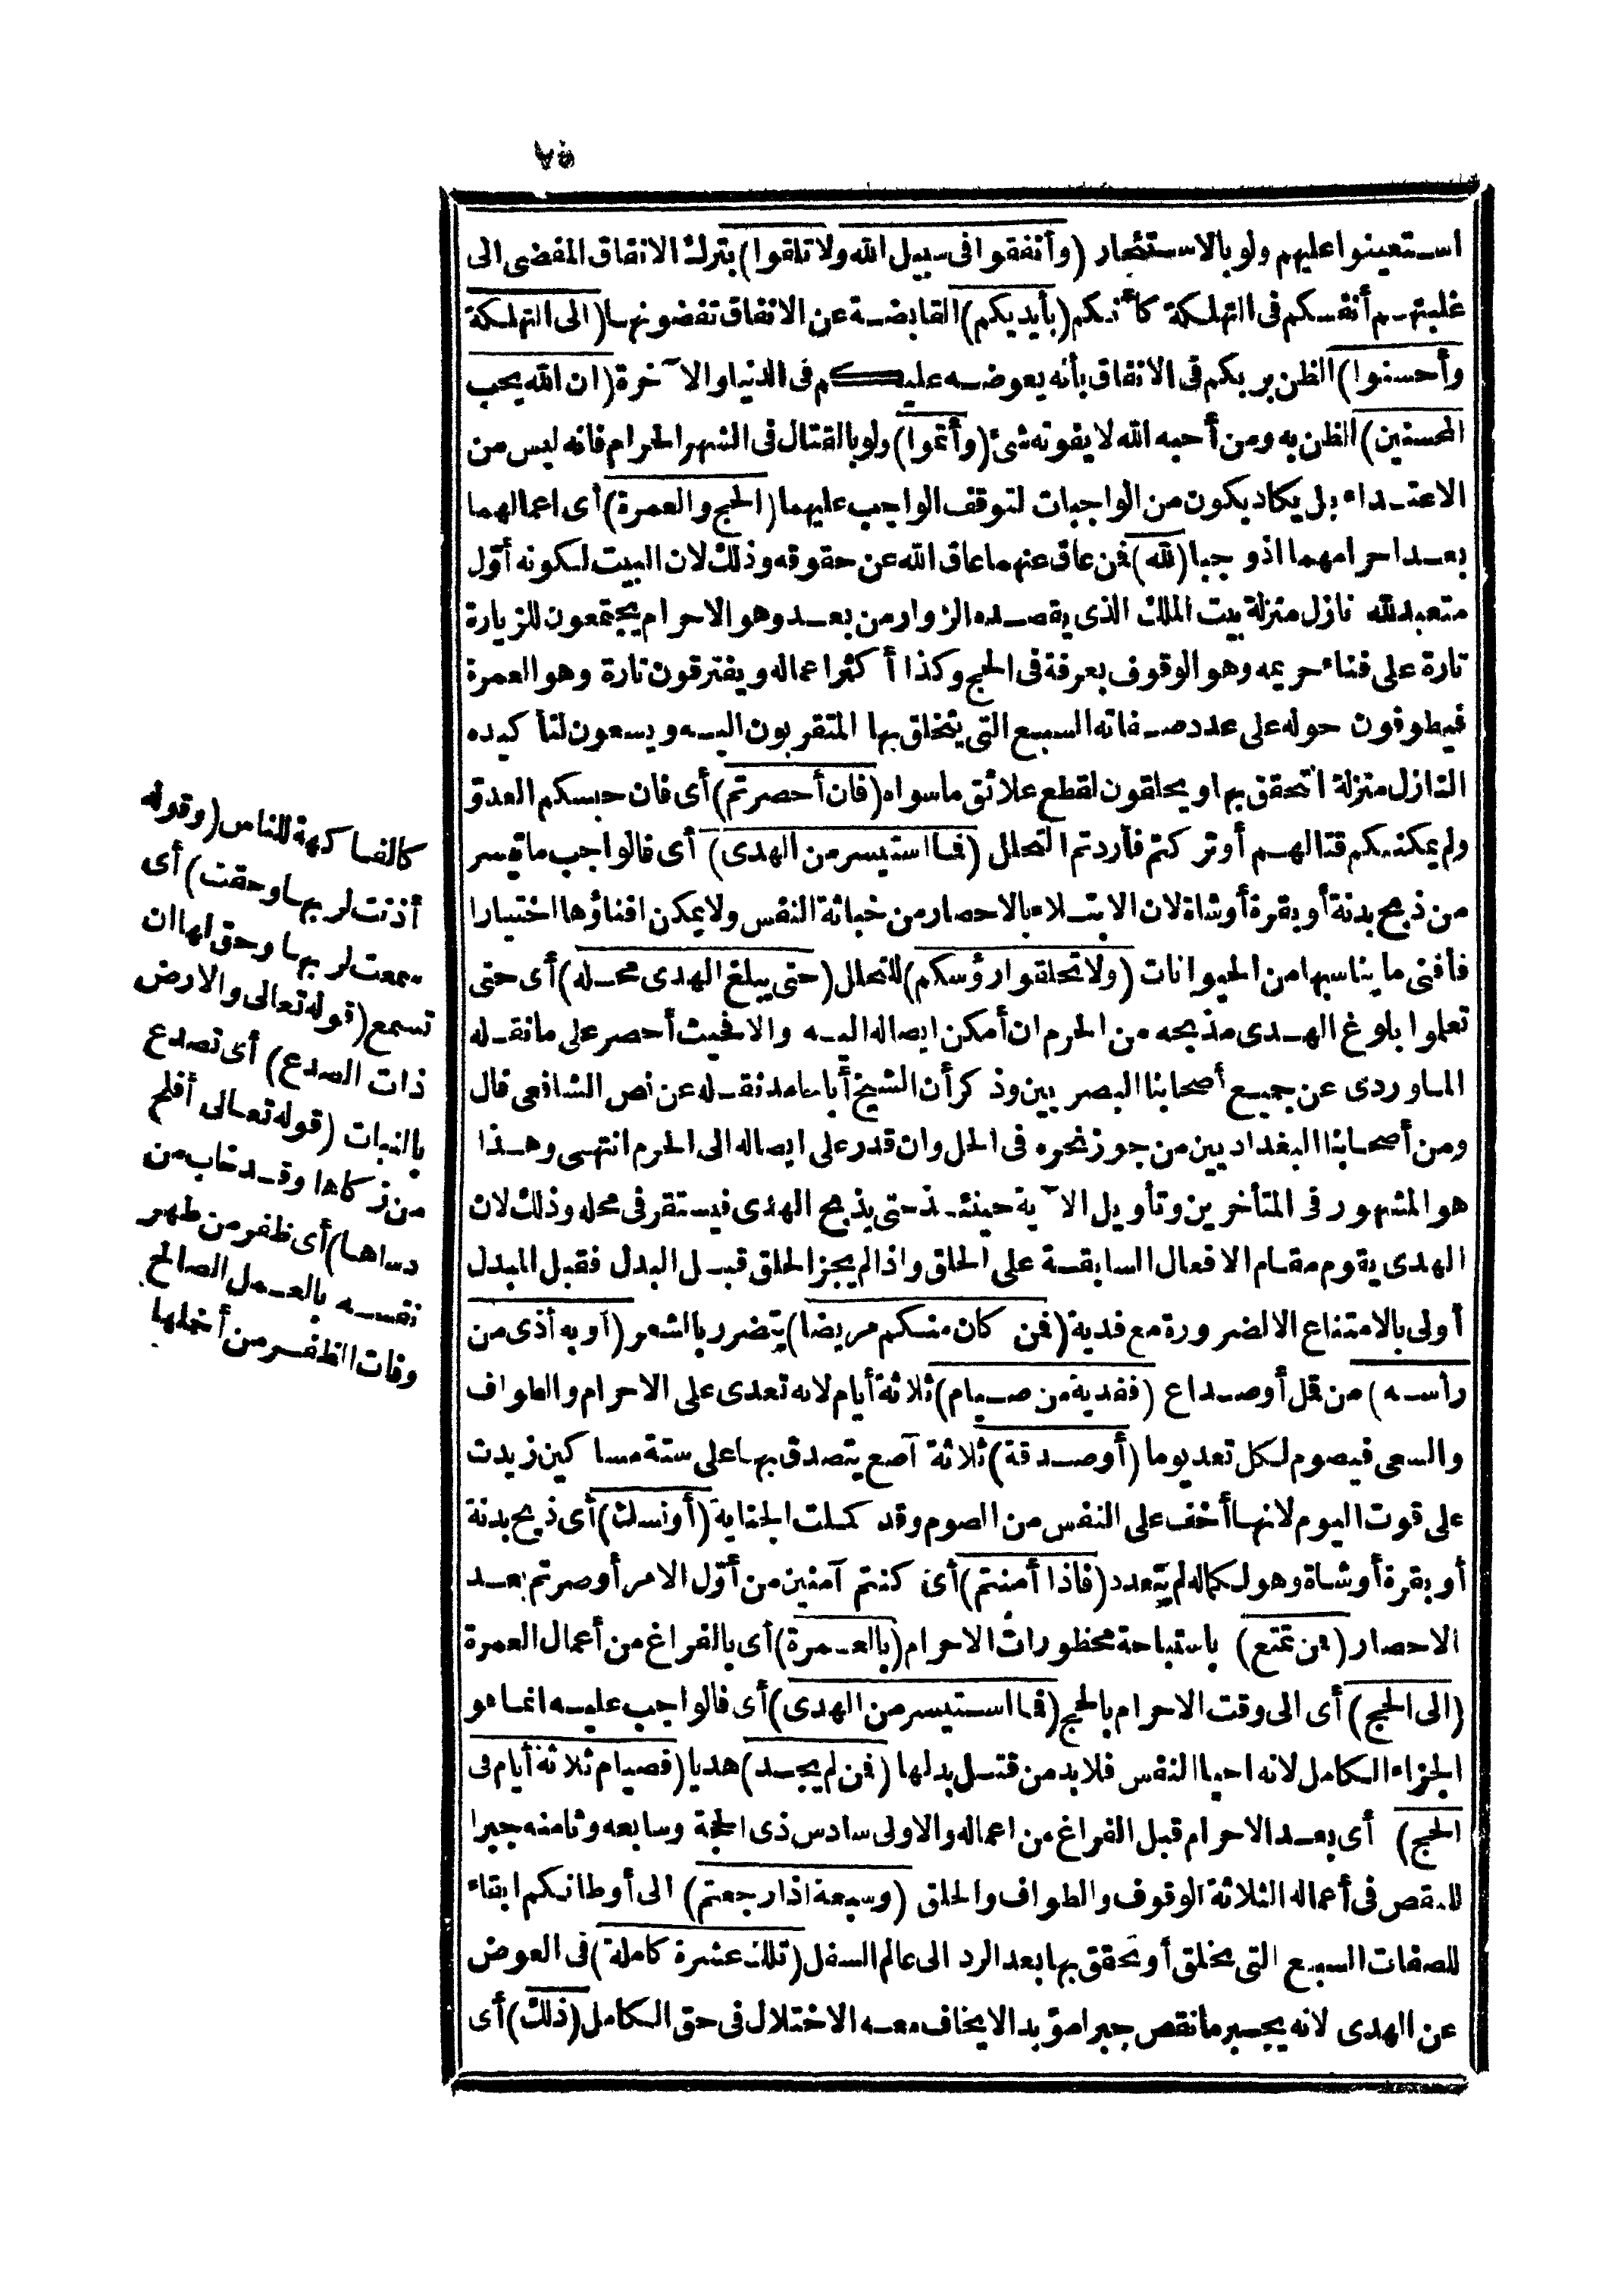 ٧٥
استعينوا عليهم ولو بالاستئجار (وأنفقوا فى سبيل الله ولا تلقوا) بترك الانفاق المفضى الى
غلبتهم أنفسكم فى التهلكة كأنكم (بأيديكم) القابضة عن الانفاق تفضونها (الى التهلكة
وأحسنوا) الظن بربكم فى الانفاق بأنه يعوضه عليكم فى الدنيا والآخرة (ان الله يحب
المحسنين) الظن به ومن أحبه الله لا يفوته شئ (وأتموا) ولو بالقتال فى الشهر الحرام فانه ليس من
الاعتداء بل يكاد يكون من الواجبات لتوقف الواجب عليهما (الحج والعمرة) أى اعمالهما
بعد احرامهما اذ وجبا (لله) فمن عاق عنهما عاق الله عن حقوقه وذلك لان البيت لكونه أوّل
متعبد لله نازل منزلة بيت الملك الذى يقصده الزوار من بعد وهو الاحرام يجتمعون للزيارة
تارة على فناء حريمه وهو الوقوف بعرفة فى الحج وكذا أكثر اعماله ويفترقون تارة وهو العمرة
فيطوفون حوله على عدد صفاته السبع التى يتخلق بها المتقربون اليه ويسعون لتأكيده
النازل منزلة التحقق بها ويحلقون لقطع علائق ما سواه (فان أحصرتم) أى فان حبسكم العدوّ
ولم يمكنكم قتالهم أوتركتم فأردتم التحلل (فما استيسر من الهدى) أى فالواجب ما تيسر
من ذبح بدنة أو بقرة أو شاة لان الابتلاء بالاحصار من خباثة النفس ولا يمكن افناؤها اختيارا
فأفنى ما يناسبها من الحيوانات (ولا تحلقوا رؤسكم) للتحلل (حتى يبلغ الهدى محله) أى حتى
تعلموا بلوغ الهدى مذبحه من الحرم ان أمكن ايصاله اليه والا فحيث أحصر على ما نقله
الماوردى عن جميع أصحابنا البصريين وذكر أن الشيخ أبا حامد نقله عن نص الشافعى قال
ومن أصحابنا البغداديين من جوز نحره فى الحل وان قدر على ايصاله الى الحرم انتهى وهذا
هو المشهور فى المتأخرين وتأويل الآية حينئذ حتى يذبح الهدى فيستقر فى محله وذلك لان
الهدى يقوم مقام الافعال السابقة على الحلق واذا لم يجز الحلق قبل البدل فقبل المبدل
أولى بالامتناع الا لضرورة مع فدية (فمن كان منكم مريضا) يتضرر بالشعر (أو به أذى من
رأسه) من قمل أو صداع (ففدية من صيام) ثلاثة أيام لانه تعدى على الاحرام والطواف
والسعى فيصوم لكل تعد يوما (أو صدقة) ثلاثة آصع يتصدق بها على ستة مساكين زيدت
على قوت اليوم لانها أخف على النفس من الصوم وقد كملت الجناية (أو نسك) أى ذبح بدنة
أو بقرة أو شاة وهو لكماله لم يتعدد (فاذا أمنتم) أى كنتم آمنين من أوّل الامر أو صرتم بعد
الاحصار (فمن تمتع) باستباحة محظورات الاحرام (بالعمرة) أى بالفراغ من أعمال العمرة
(الى الحج) أى الى وقت الاحرام بالحج (فما استيسر من الهدى) أى فالواجب عليه انما هو
الجزاء الكامل لانه احيا النفس فلا بد من قتل بدلها (فمن لم يجد) هديا (فصيام ثلاثة أيام فى
الحج) أى بعد الاحرام قبل الفراغ من اعماله والاولى سادس ذى الحجة وسابعه وثامنه جبرا
للنقص فى أعماله الثلاثة الوقوف والطواف والحلق (وسبعة اذا رجعتم) الى أوطانكم ابقاء
للصفات السبع التى تخلق أو تحقق بها بعد الرد الى عالم السفل (تلك عشرة كاملة) فى العوض
عن الهدى لانه يجبر ما نقص جبرا مؤبدا لا يخاف معه الاختلال فى حق الكامل (ذلك) أى
كالفاكهة للناس (وقوله
أذنت لربها وحقت) أى
سمعت لربها وحق لها ان
تسمع (قوله تعالى والارض
ذات الصدع) أى تصدع
بالنبات (قوله تعالى أفلح
من زكاها وقد خاب من
دساها) أى ظفر من طهر
نفسه بالعمل الصالح
وفات الظفر من أخملها